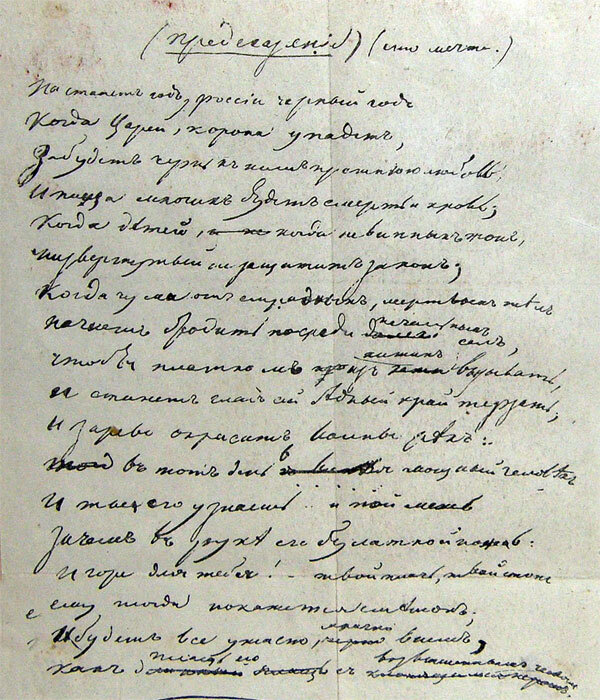 (Предсказаніе) (это мечта.)
Настанетъ годъ, россіи черный годъ
Когда Царей, корона упадетъ,
Забудетъ чернь къ нимъ прежнюю любовь,
И пища многихъ будетъ смерть и кровь;
Когда дѣтей, когда невинныхъ жонъ,
Низвергнутый не защититъ законъ;
Когда чума отъ смрадныхъ, мертвыхъ тѣлъ
начнетъ бродить посреди печальныхъ селъ,
чтобы платкомъ изъ хижинъ вызывать,
и станетъ гладъ сей бѣдный край терзать;
И зарево окраситъ волны рѣкъ:
въ тотъ день явится мощный человѣкъ
И ты его узнаешь и поймешь
Зачемъ въ рукѣ его булатный ножъ:
И горе для тебя! твой плачь, твой стонъ
ему тогда покажется смѣшонъ;
И будетъ все ужасно, мрачно въ немъ,
какъ плащь его съ возвышеннымъ челомъ